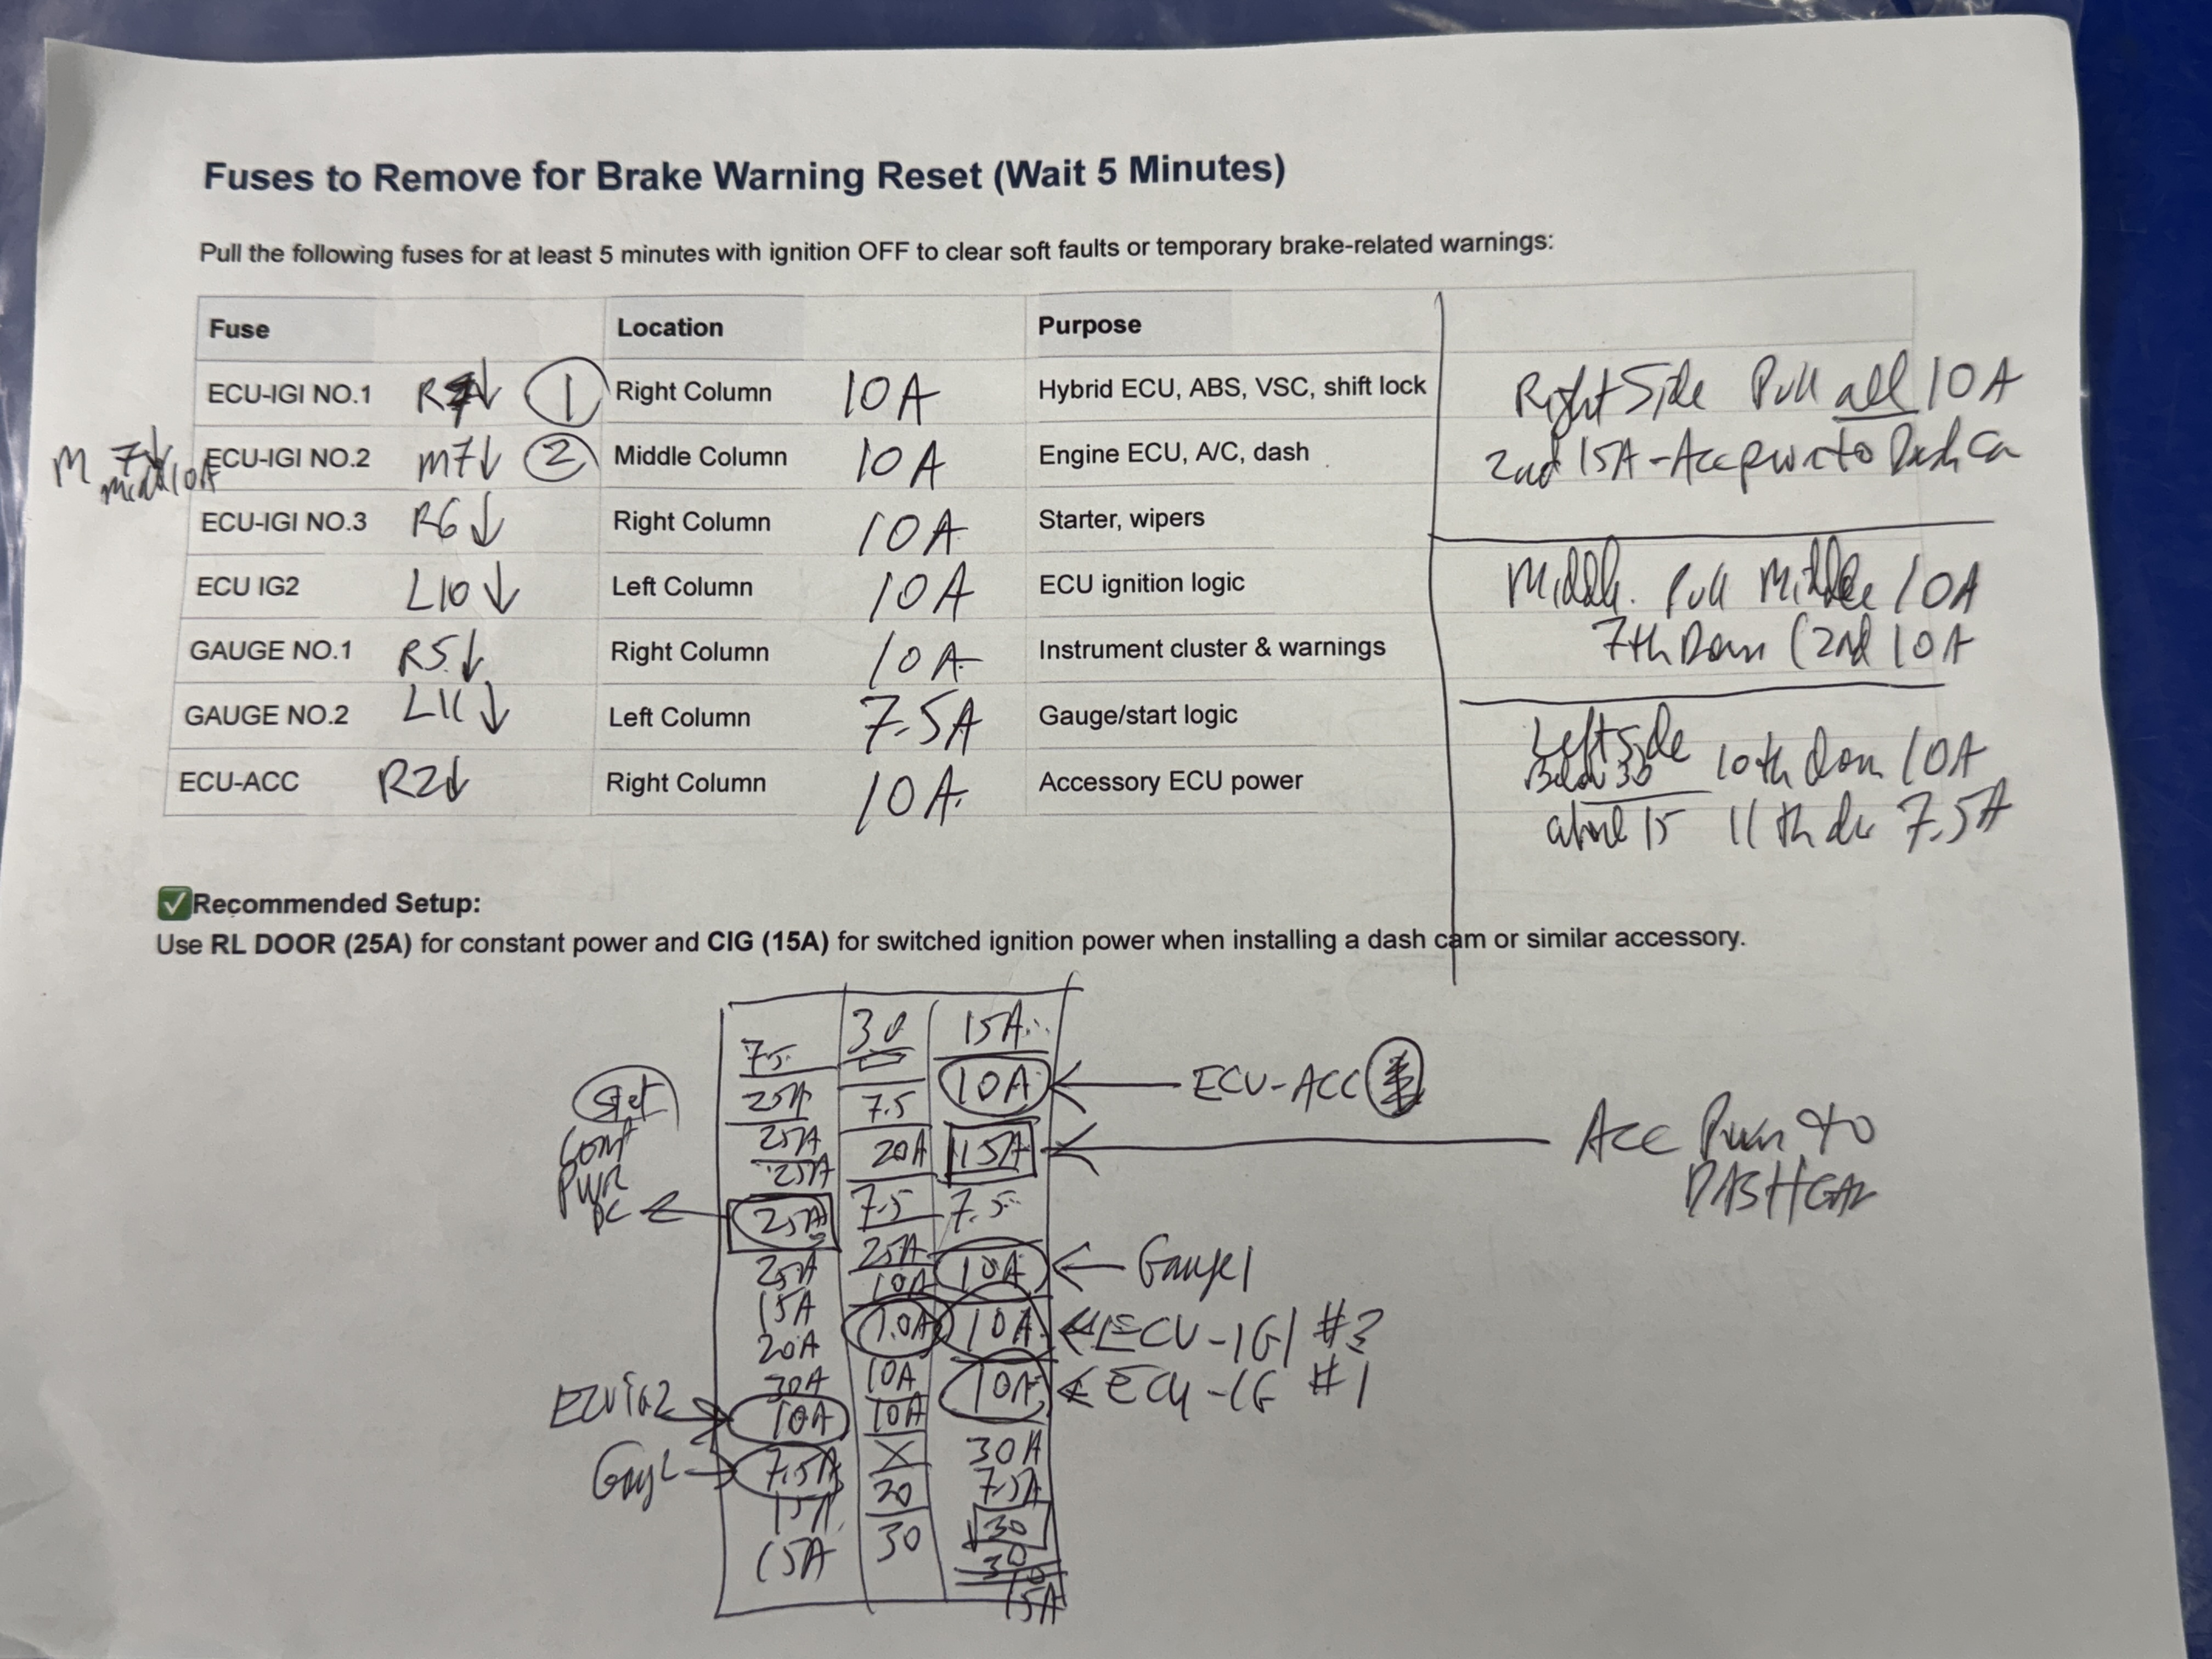 Fuses to Remove for Brake Warning Reset (Wait 5 Minutes)
Pull the following fuses for at least 5 minutes with ignition OFF to clear soft faults or temporary brake-related warnings:
Fuse Location Purpose
ECU-IGI NO.1 R7↓ 1 Right Column 10A Hybrid ECU, ABS, VSC, shift lock
M 7↓ 10A
ECU-IGI NO.2 M7↓ 2 Middle Column 10A Engine ECU, A/C, dash
ECU-IGI NO.3 R6↓ Right Column 10A Starter, wipers
ECU IG2 L10↓ Left Column 10A ECU ignition logic
GAUGE NO.1 R5↓ Right Column 10A Instrument cluster & warnings
GAUGE NO.2 L11↓ Left Column 7.5A Gauge/start logic
ECU-ACC R2↓ Right Column 10A. Accessory ECU power
Right Side Pull all 10A
2nd 15A - Acc pwr to Dash Ca
Middle. Pull Middle 10A
7th Down (2nd 10A
Left Side 10th down 10A
Below 30
above 15 11th dn 7.5A
✓Recommended Setup:
Use RL DOOR (25A) for constant power and CIG (15A) for switched ignition power when installing a dash cam or similar accessory.
7.5
25A
25A
25A
25A
25A
15A
20A
30A
10A
7.5A
15A
15A
30
7.5
20A
7.5
25A
10A
10A
10A
10A
X
20
30
15A
10A
15A
7.5
10A
10A
10A
30A
7.5A
30
30
15A
ECU-ACC
Acc Pwr to
DASHCAM
Gauge 1
ECU-IGI #3
ECU-IG #1
Const
PWR
DC
ECU IG2